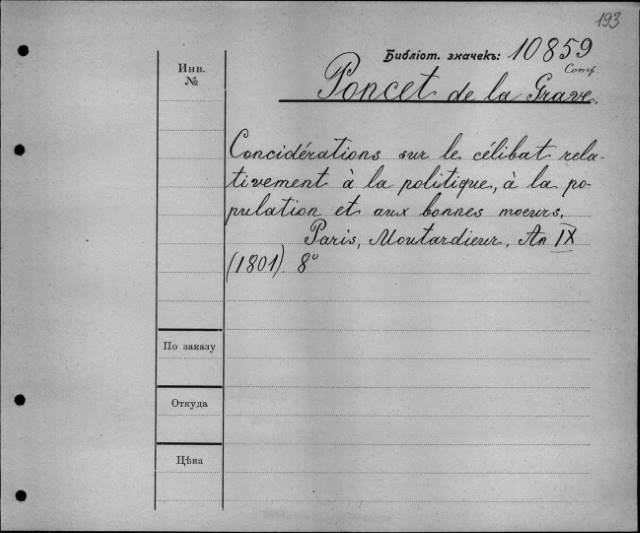 193
Библіот. значекъ: 10859
Инв.
№
Poncet de la Grave.
Concidérations sur le célibat rela-
tivement à la politique, à la po-
pulation et aux bonnes moeurs.
Paris, Moutardieur, An IX
(1801). 8°
По заказу
Откуда
Цѣна